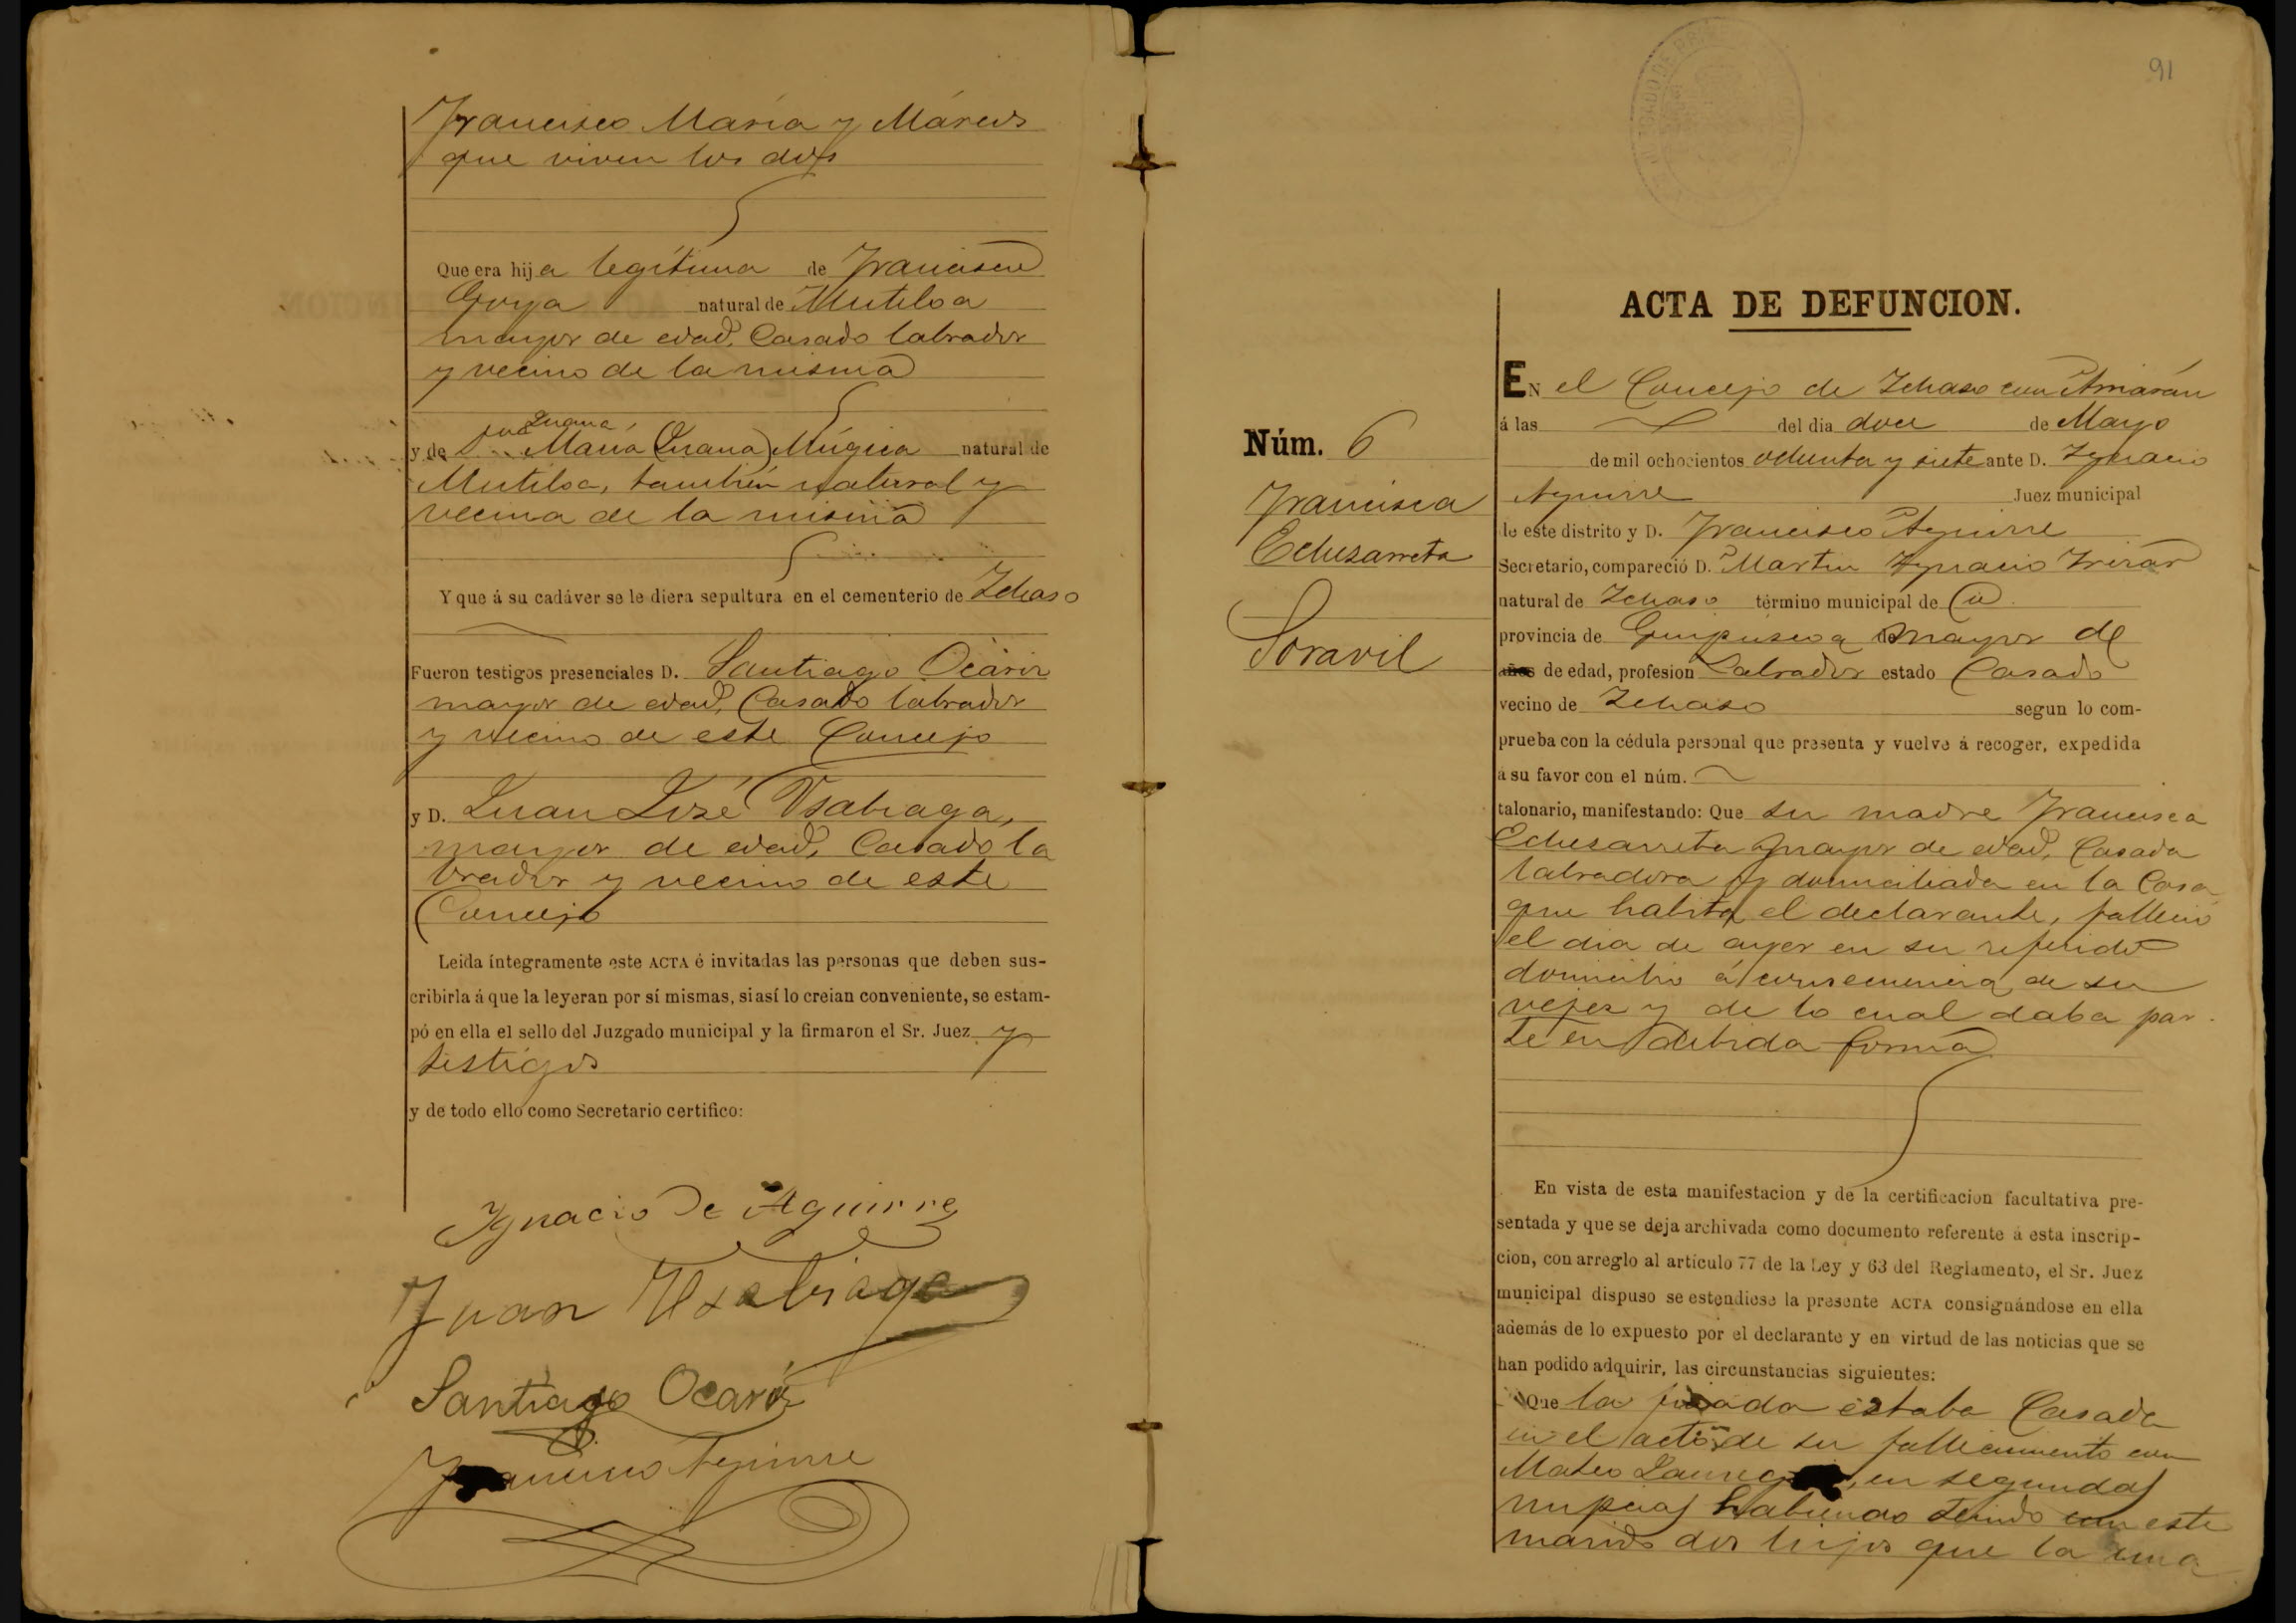 Francisco María y Márcos
que viven los dos
Que era hija legítima de Francisco
Goya natural de Mutiloa
mayor de edad, Casado labrador
y vecino de la misma
Juana
y de María (Juana) Múgica natural de
Mutiloa, también natural y
vecina de la misma
Y que á su cadáver se le diera sepultura en el cementerio de Ichaso
Fueron testigos presenciales D. Santiago Ocáriz
mayor de edad, Casado labrador
y vecino de este Concejo
y D. Juan José Usabiaga,
mayor de edad, Casado la
brador y vecino de este
Concejo
Leida íntegramente este ACTA é invitadas las personas que deben sus-
cribirla á que la leyeran por sí mismas, si así lo creian conveniente, se estam-
pó en ella el sello del Juzgado municipal y la firmaron el Sr. Juez y
testigos
y de todo ello como Secretario certifico:
Ignacio De Aguirre
Juan Usabiaga
Santiago Ocariz
Francisco Aguirre
91
ACTA DE DEFUNCION.
Núm. 6
Francisca
Echezarreta
Soravil
EN el Concejo de Ichaso con Arriarán
á las del dia doce de Mayo
de mil ochocientos ochenta y siete ante D. Ygnacio
Aguirre Juez municipal
de este distrito y D. Francisco Aguirre
Secretario, compareció D. Martin Ygnacio Irizar
natural de Ichaso término municipal de id
provincia de Guipúscoa de mayor de
años de edad, profesion Labrador estado Casado
vecino de Ichaso segun lo com-
prueba con la cédula personal que presenta y vuelve á recoger, expedida
á su favor con el núm.
talonario, manifestando: Que su madre Francisca
Echezarreta mayor de edad, Casada
labradora y domiciliada en la Casa
que habita el declarante, falleció
el dia de ayer en su referido
domicilio á consecuencia de su
vejez y de lo cual daba par
te en debida forma
En vista de esta manifestacion y de la certificacion facultativa pre-
sentada y que se deja archivada como documento referente á esta inscrip-
cion, con arreglo al artículo 77 de la Ley y 63 del Reglamento, el Sr. Juez
municipal dispuso se estendiese la presente ACTA consignándose en ella
además de lo expuesto por el declarante y en virtud de las noticias que se
han podido adquirir, las circunstancias siguientes:
Que la finada estaba Casada
en el acto de su fallecimiento con
Mateo en segundas
nupcias habiendo tenido con este
marido dos hijos que la una